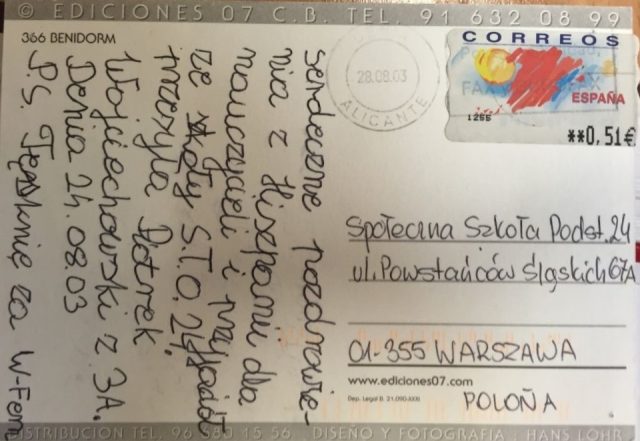 © EDICIONES 07 C.B. TEL. 91 632 08 99
366 BENIDORM
serdeczne pozdrowie-
nia z Hiszpanii dla
nauczycieli i
ze S.T.O. 24
przesyła Piotrek
Wojciechowski z 3A.
Denia 24.08.03
P.S. Tęsknię za W-Fem
28.08.03
ALICANTE
CORREOS
ESPAÑA
1255
**0,51€
Społeczna Szkoła Podst. 24
ul. Powstańców Śląskich 67A
01-355 WARSZAWA
www.ediciones07.com
POLOÑA
DISTRIBUCION TEL. 96 680 15 56 DISEÑO Y FOTOGRAFIA HANS LOHR